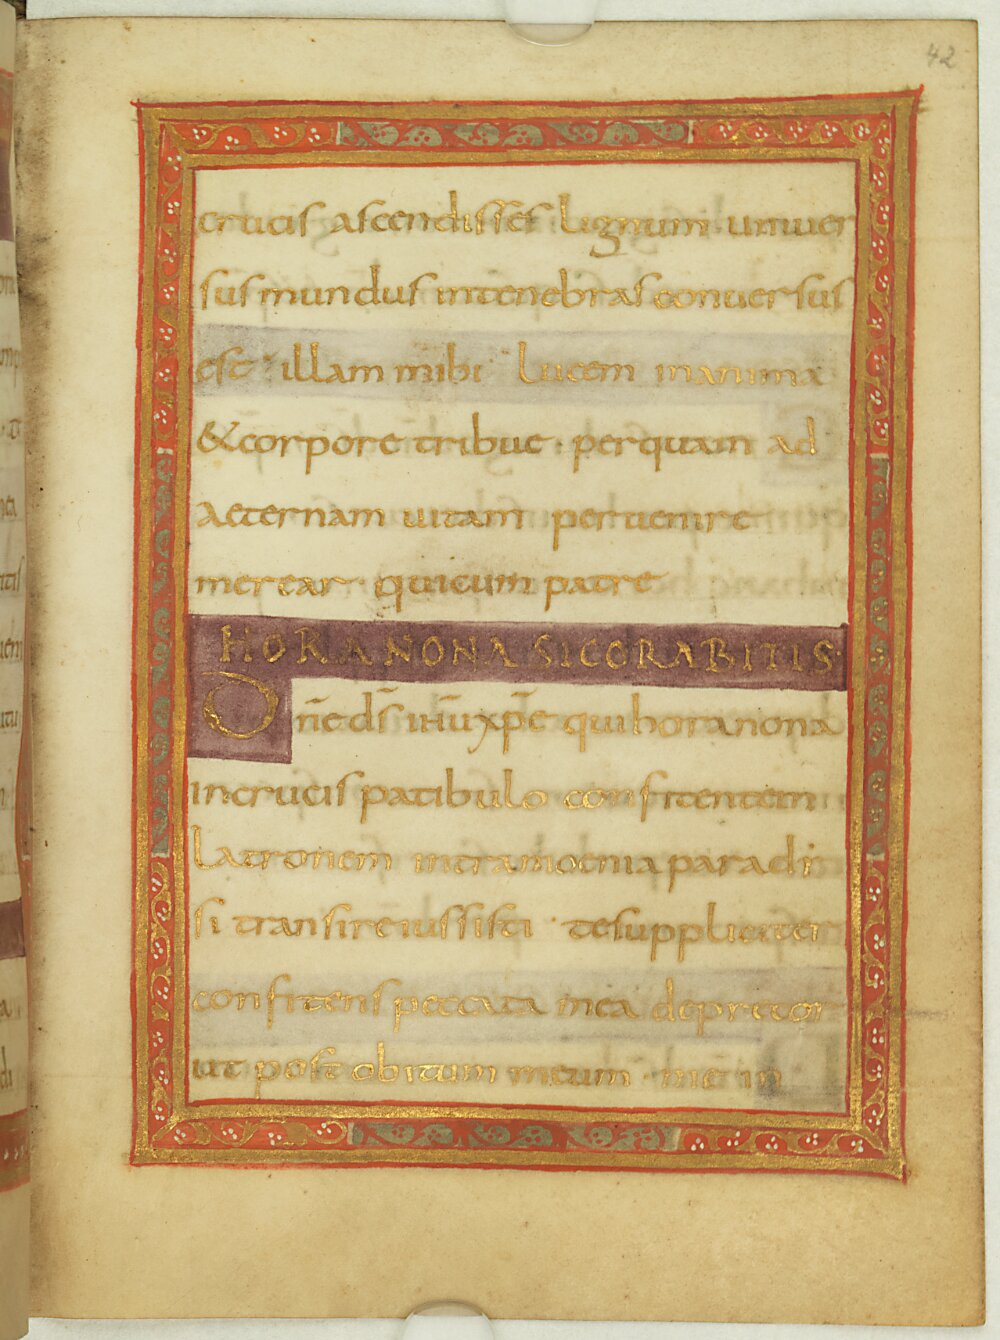 42
crucis ascendisses lignum uniuer
sus mundus in tenebras conuersus
est · illam mihi lucem in anima
& corpore tribue · per quam ad
aeternam uitam peruenire
merear · qui cum patre
HORA NONA SIC ORABITIS·
Dñe dš ihū xpē qui hora nona
in crucis patibulo confitentem
latronem intra moenia paradi
si transire iussisti · te suppliciter
confitens peccata mea deprecor
ut post obitum meum · me in